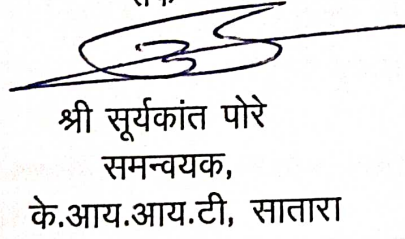 श्री सूर्यकांत पोरे
समन्वयक,
के.आय.आय.टी, सातारा